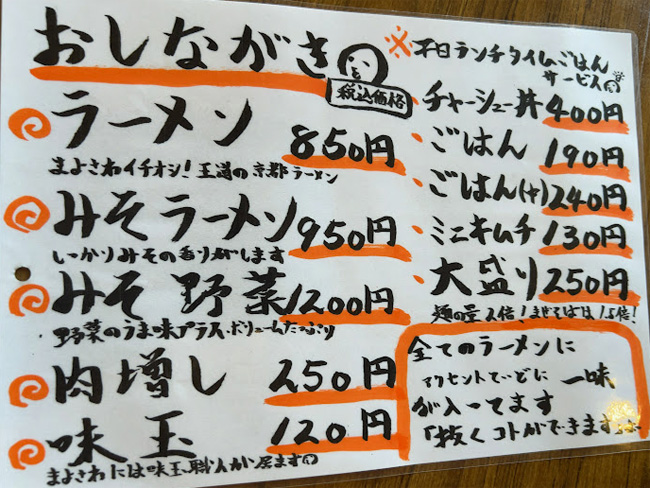 おしながき
税込価格
ラーメン 850円
まよさわイチオシ!王道の京都ラーメン
みそラーメン 950円
しっかりみその香りがします
みそ野菜 1200円
野菜のうま味プラス、ボリュームたっぷり
肉増し 250円
味玉 120円
まよさわには味玉職人が居ます
※平日ランチタイムごはん
サービス
・チャーシュー丼 400円
・ごはん 190円
・ごはん(大) 240円
・ミニキムチ 130円
・大盛り 250円
麺の量2倍!まぜそばは1.5倍!
全てのラーメンに
アクセントていどに一味
が入ってます
「抜くコトができます」